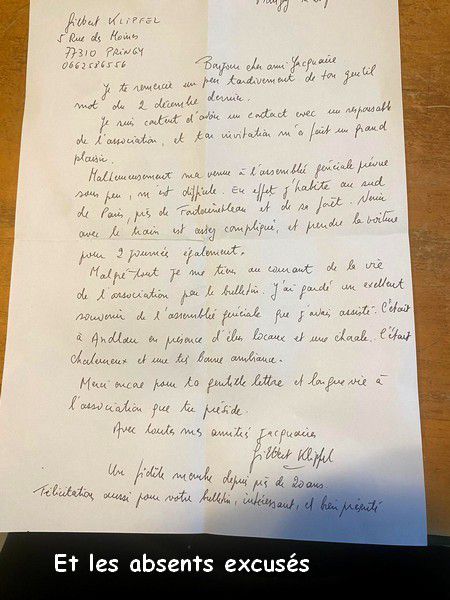 Gilbert KLIPFEL
5 Rue des Moines
77310 PRINGY
0662586556
Bonjour cher ami Jacquaire
Je te remercie un peu tardivement de ton gentil
mot du 2 décembre dernier.
Je suis content d'avoir un contact avec un responsable
de l'association, et ton invitation m'a fait un grand
plaisir.
Malheureusement ma venue à l'assemblée générale prévue
sous peu, m'est difficile. En effet j'habite au sud
de Paris, près de Fontainebleau et de sa forêt. Venir
avec le train est assez compliqué, et prendre la voiture
pour 2 journées également.
Malgré-tout je me tiens au courant de la vie
de l'association par le bulletin. J'ai gardé un excellent
souvenir de l'assemblée générale que j'avais assisté. C'était
à Andlau en présence d'élus locaux et une chorale. C'était
chaleureux et une très bonne ambiance.
Merci encore pour ta gentille lettre et longue vie à
l'association que tu préside.
Avec toutes mes amitiés Jacquaires
Gilbert Klipfel
Un fidèle membre depuis près de 20 ans
Félicitation aussi pour votre bulletin, intéressant, et bien présenté
Et les absents excusés